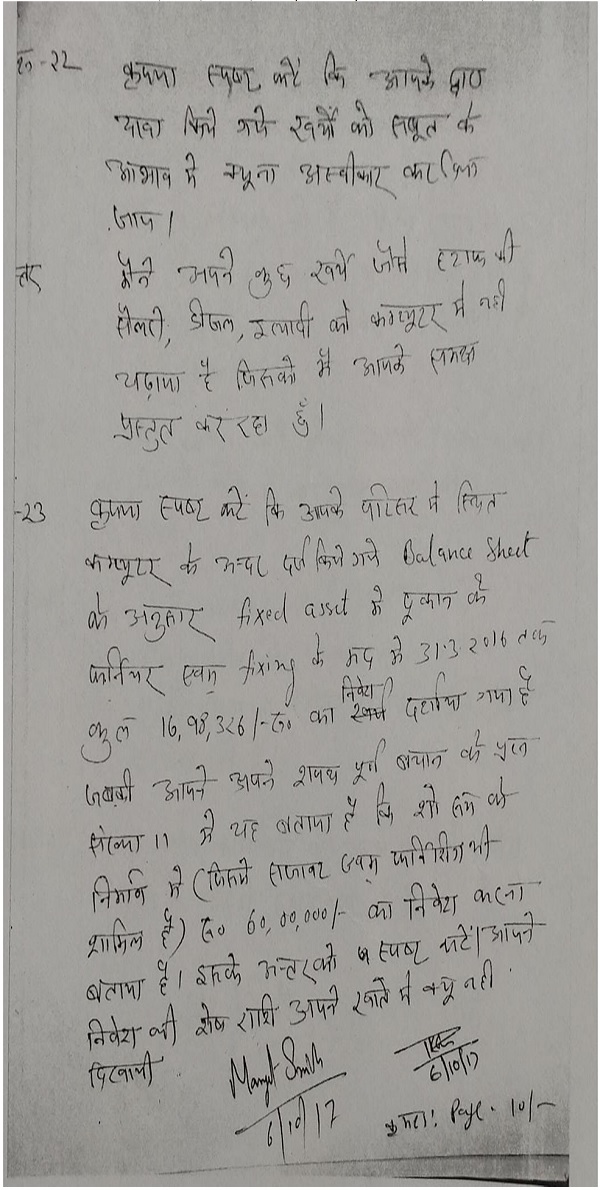 प्र०-22 कृपया स्पष्ट करें कि आपके द्वारा
दावा किये गये खर्चो को सबूत के
अभाव मे क्यूना अस्वीकार कर दिया
जाय।
उत्तर मैने अपने कुछ खर्चे जैसे स्टाफ की
सैलरी, डीजल, इत्यादी को कम्प्यूटर मे नही
चढ़ाया है जिसको मै आपके समक्ष
प्रस्तुत कर रहा हुँ।
-23 कृपया स्पष्ट करें कि आपके परिसर मे स्थित
कम्प्यूटर के अन्दर दर्ज किये गये Balance Sheet
के अनुसार fixed asset मे दूकान के
फर्निचर एवम् fixing के मद मे 31.3.2016 तक
कुल 16,98,326/- रू० का निवेश दर्शाया गया है
जबकी आपने अपने शपथ पूर्ण बयान के प्रश्न
संख्या 11 मे यह बताया है कि शो रूम के
निर्माण मे (जिसमे सजावट एवम् फर्निशिंग भी
शामिल है) रू० 60,00,000/- का निवेश करना
बताया है। इसके अन्तर को स्पष्ट करें। आपने
निवेश की शेष राशि अपने खाते मे क्यू नही
दिखायी
6/10/17
6/10/17
क्रमश: Page - 10/-